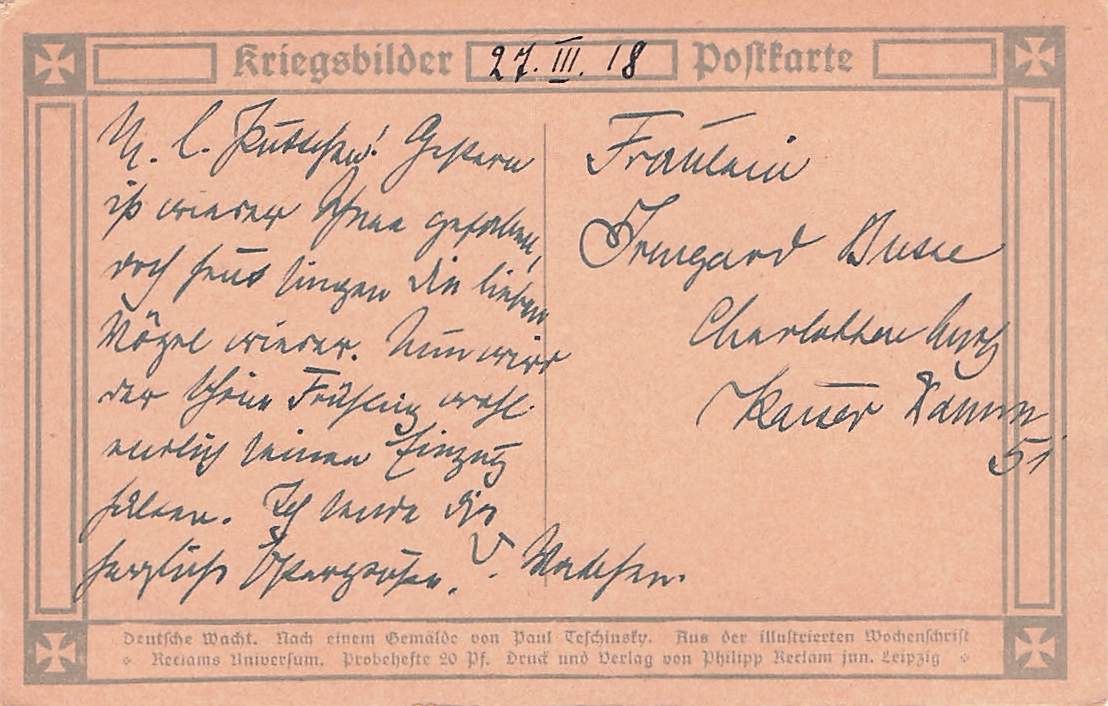 Kriegsbilder 27. III. 18 Postkarte
M. l. Gestern
ist wieder Schnee gefallen,
doch heut singen die lieben
Vögel wieder. Nun wird
der schöne Frühling wohl
endlich seinen Einzug
halten. Ich sende dir
herzliche Ostergrüße. V.
Fräulein
Irmgard Busse
Charlottenburg
Kaiser Damm
51
Deutsche Wacht. Nach einem Gemälde von Paul Teschinsky. Aus der illustrierten Wochenschrift
Reclams Universum. Probehefte 20 Pf. Druck und Verlag von Philipp Reclam jun. Leipzig